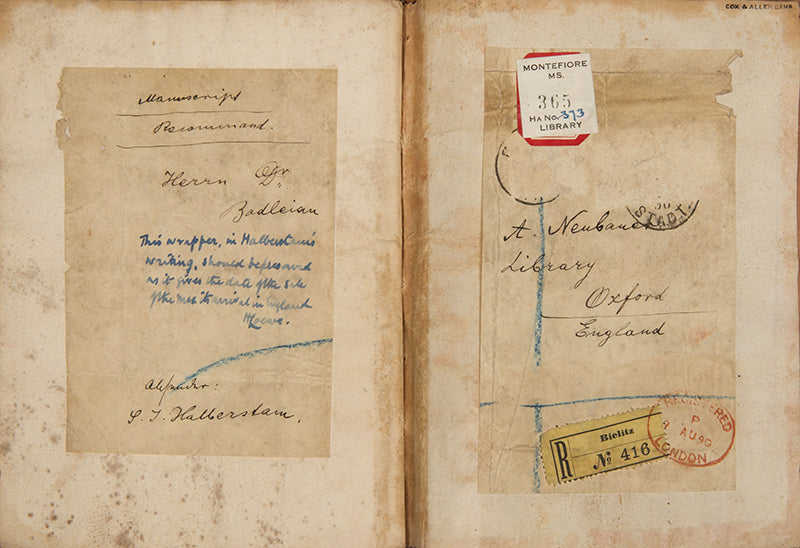 Manuscript
Recommand.
Herrn Dr.
Bodleian
This wrapper, in Halberstam's
writing, should be preserved
as it gives the date of the sale
of the mss & arrival in England
HLoewe.
Absender:
S. J. Halberstam.
COX & ALLEN
MONTEFIORE
MS.
365
HA No. 373
LIBRARY
90
STADT
A. Neubauer
Library
Oxford
England
Bielitz
R No 416
REGISTERED
P
9 AU 90
LONDON